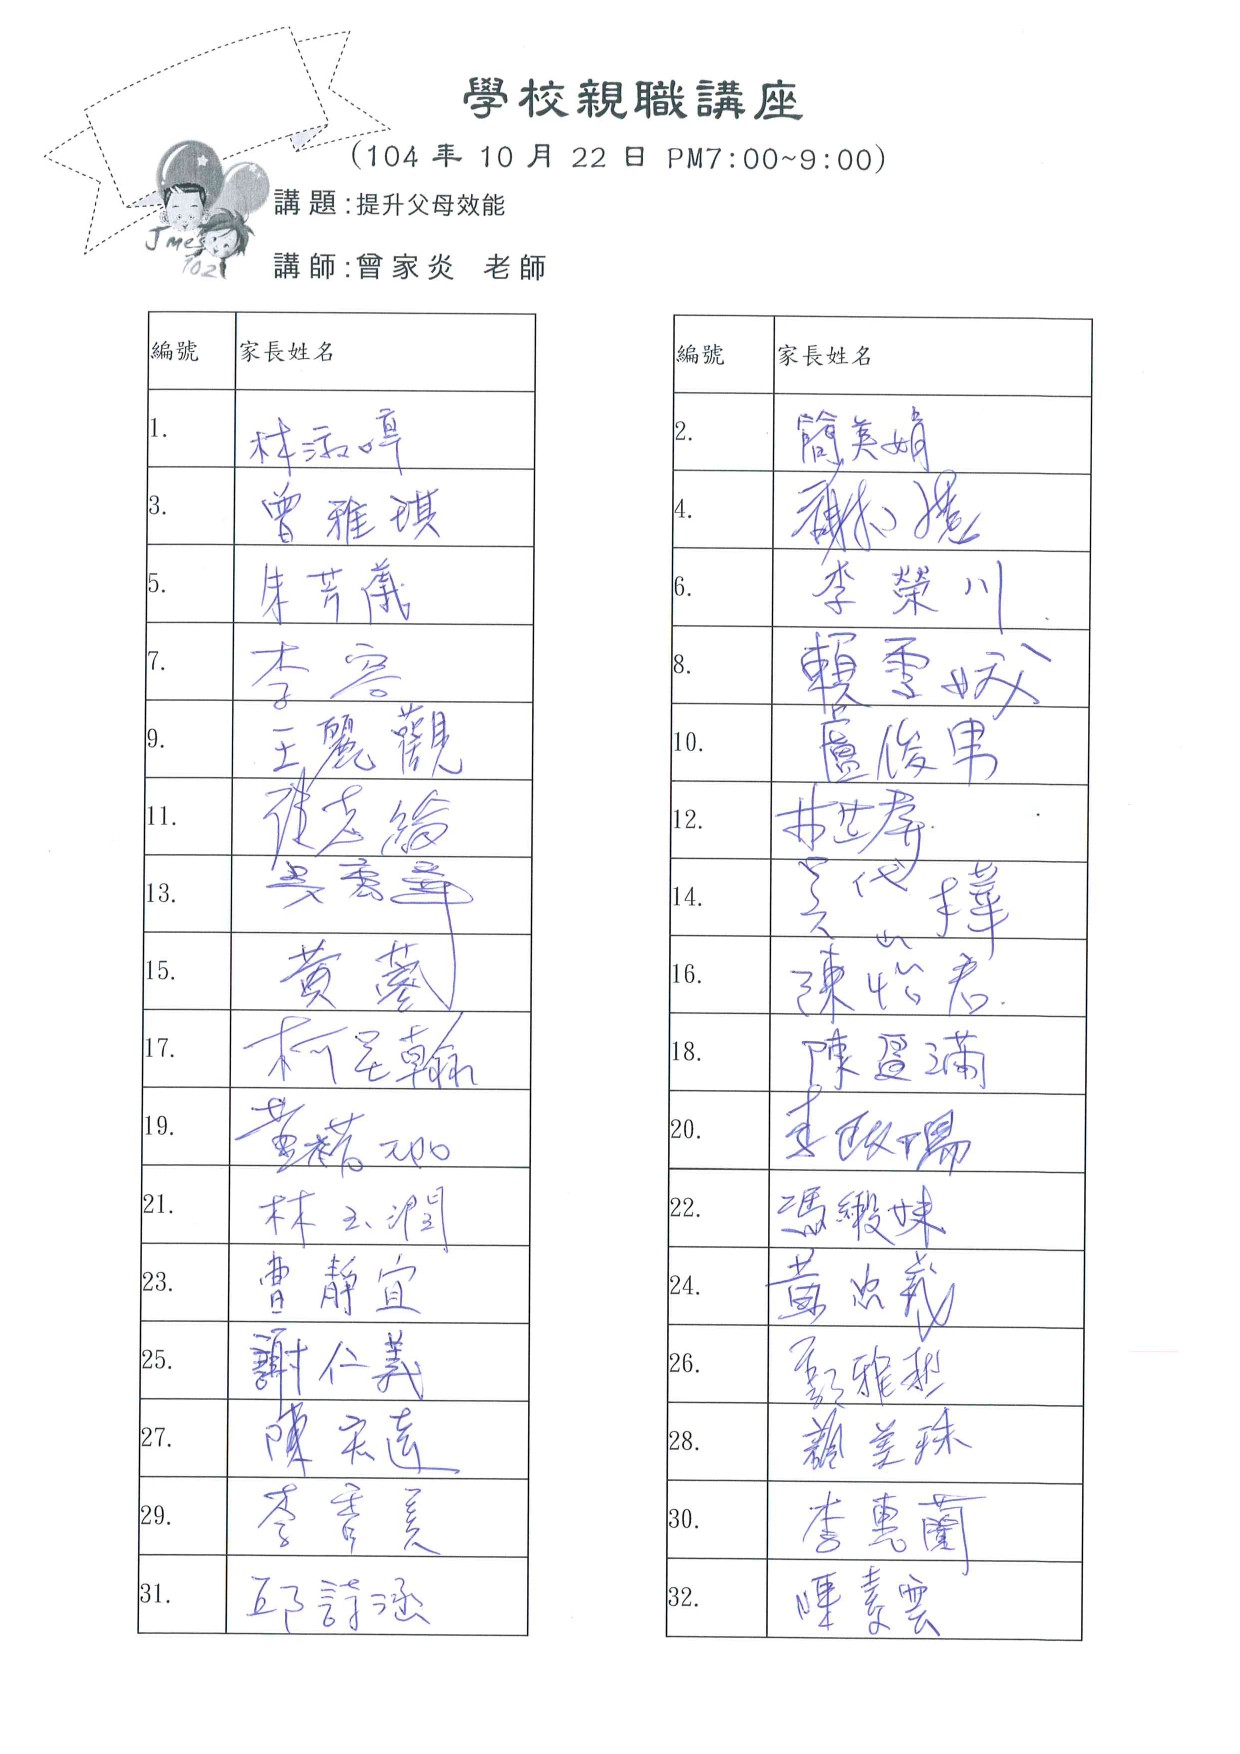 學校親職講座
(104 年 10 月 22 日 PM7:00~9:00)
講題:提升父母效能
Jmes
102
講師:曾家炎 老師
編號 家長姓名 編號 家長姓名
1. 林淑 2. 簡美娟
3. 曾雅琪 4.
5. 朱芳儀 6. 李榮川
7. 李容 8. 賴雪
9. 王麗觀 10. 盧俊男
11. 12. 林芷群
13. 吳雲華 14. 樺
15. 黃 16. 陳怡君
17. 柯 翰 18. 陳盈滿
19. 黃 20. 李政陽
21. 林玉潤 22. 馮緞妹
23. 曹靜宜 24. 黃忠義
25. 謝仁義 26. 彭雅
27. 陳宏達 28. 美珠
29. 李香美 30. 李惠蘭
31. 邱詩涵 32. 陳素雲